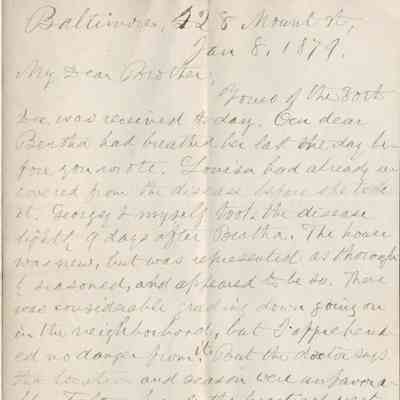 Baltimore, 428 Mount st,
Jan 8, 1879.
My Dear Brother,
Yours of the 30th
Dec was received to day. Our dear
Bertha had breathed her last the day be-
fore you wrote. Louisa had already re
covered from the disease before she took
it. Georgy & myself took the disease
lightly 9 days after Bertha. The house
was new, but was represented as thorough
ly seasoned, and appeared to be so. There
was considerable grading down going on
in the neighborhood, but I apprehend
ed no danger from it. But the doctor says
the location and season were unfavora